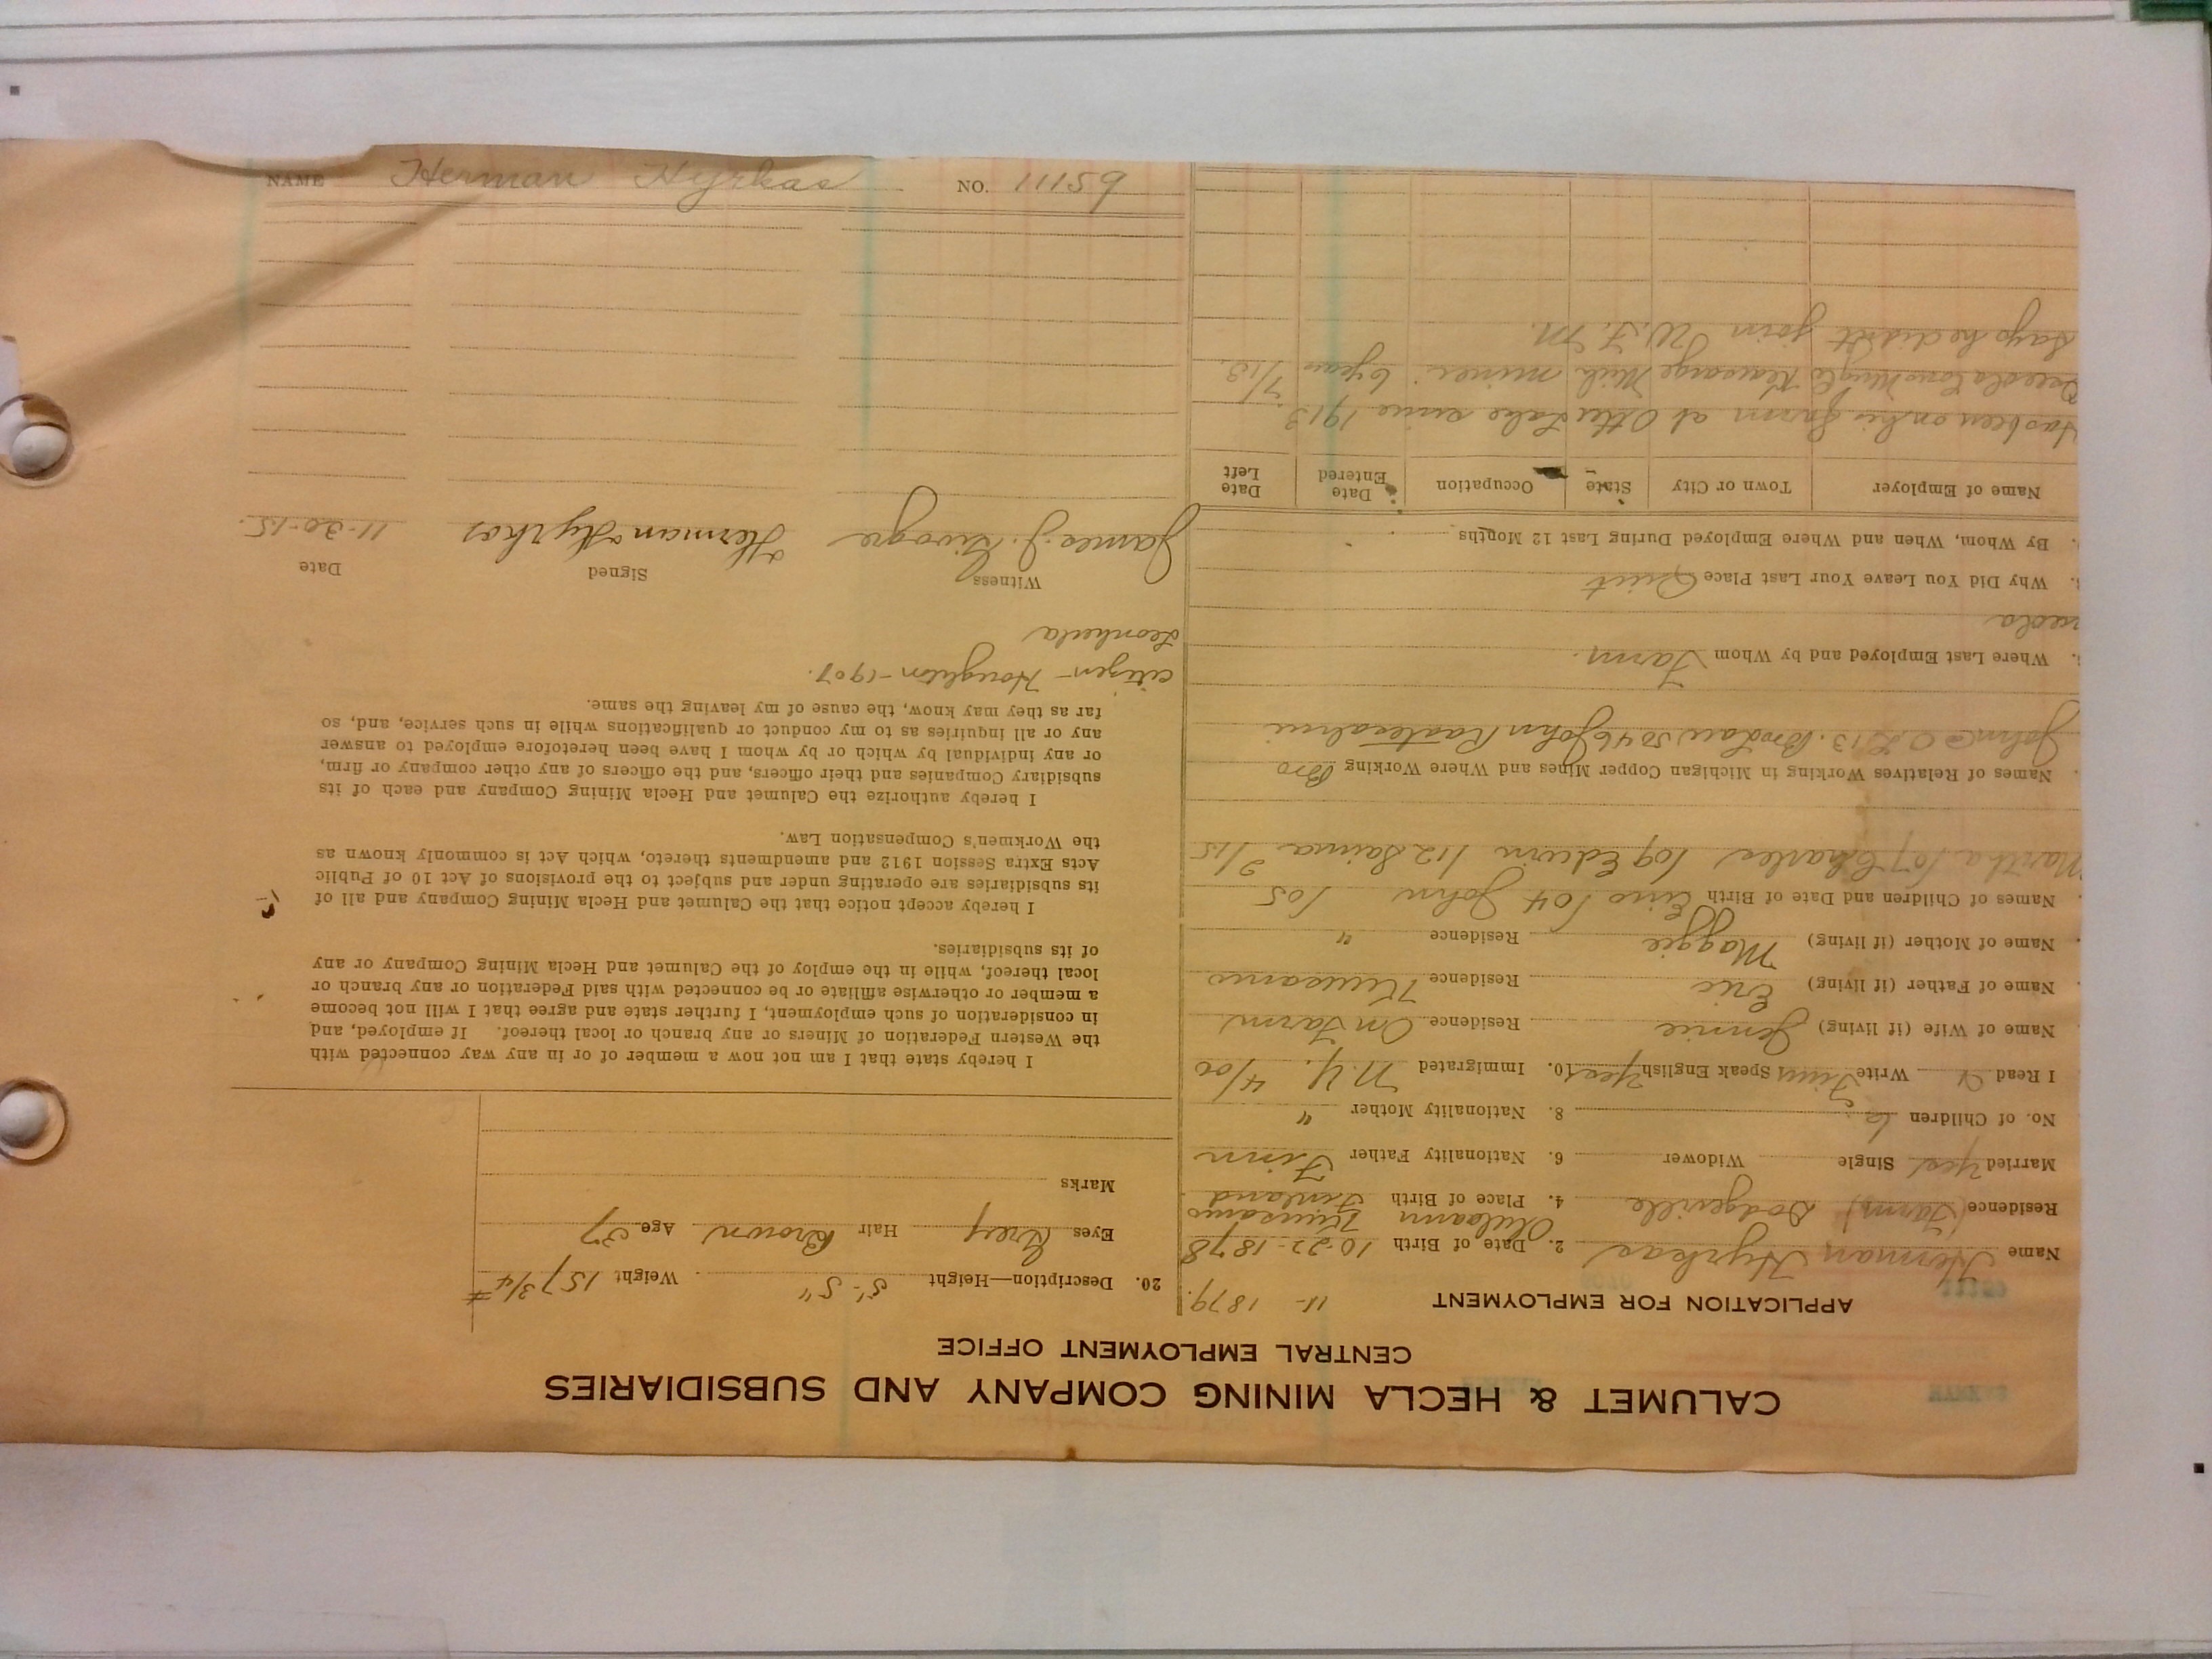 CALUMET & HECLA MINING COMPANY AND SUBSIDIARIES
CENTRAL EMPLOYMENT OFFICE
APPLICATION FOR EMPLOYMENT 11- 1879.
Name Herman Hyrkas 2. Date of Birth 10-22-1878
Kuusamo
Residence (Farm) Dodgeville 4. Place of Birth Finland
Married Yes Single Widower 6. Nationality Father Finn
No. of Children 6 8. Nationality Mother "
I Read Write Finn Speak English Yes 10. Immigrated N.Y. 4/00
Name of Wife (if living) Jennie Residence On Farm
Name of Father (if living) Eric Residence Kuusamo
Name of Mother (if living) Maggie Residence "
Names of Children and Date of Birth Eino /04 John /05
Martha /07 Charles /09 Edwin /12 Saima 2/15
Names of Relatives Working in Michigan Copper Mines and Where Working Bro
John @ O.K. 13. Bro Law 5046 John
Where Last Employed and by Whom Farm.
Why Did You Leave Your Last Place Quit
By Whom, When and Where Employed During Last 12 Months
Name of Employer Town or City State Occupation Date Entered Date Left
Has been on his farm at Otter Lake since 1913
Osceola Cons Mng Co Kearsarge Mich miner 6 years 7/13.
Says he didn't join W.F.M.
20. Description—Height 5'-5" Weight 157 3/4 #
Eyes Grey Hair Brown Age 37
Marks
I hereby state that I am not now a member of or in any way connected with
the Western Federation of Miners or any branch or local thereof. If employed, and
in consideration of such employment, I further state and agree that I will not become
a member or otherwise affiliate or be connected with said Federation or any branch or
local thereof, while in the employ of the Calumet and Hecla Mining Company or any
of its subsidiaries.
I hereby accept notice that the Calumet and Hecla Mining Company and all of
its subsidiaries are operating under and subject to the provisions of Act 10 of Public
Acts Extra Session 1912 and amendments thereto, which Act is commonly known as
the Workmen's Compensation Law.
I hereby authorize the Calumet and Hecla Mining Company and each of its
subsidiary Companies and their officers, and the officers of any other company or firm,
or any individual by which or by whom I have been heretofore employed to answer
any or all inquiries as to my conduct or qualifications while in such service, and, so
far as they may know, the cause of my leaving the same.
citizen - Houghton - 1907.
Witness Signed Date
James J. Herman Hyrkas 11-20-15.
NAME Herman Hyrkas NO. 11159